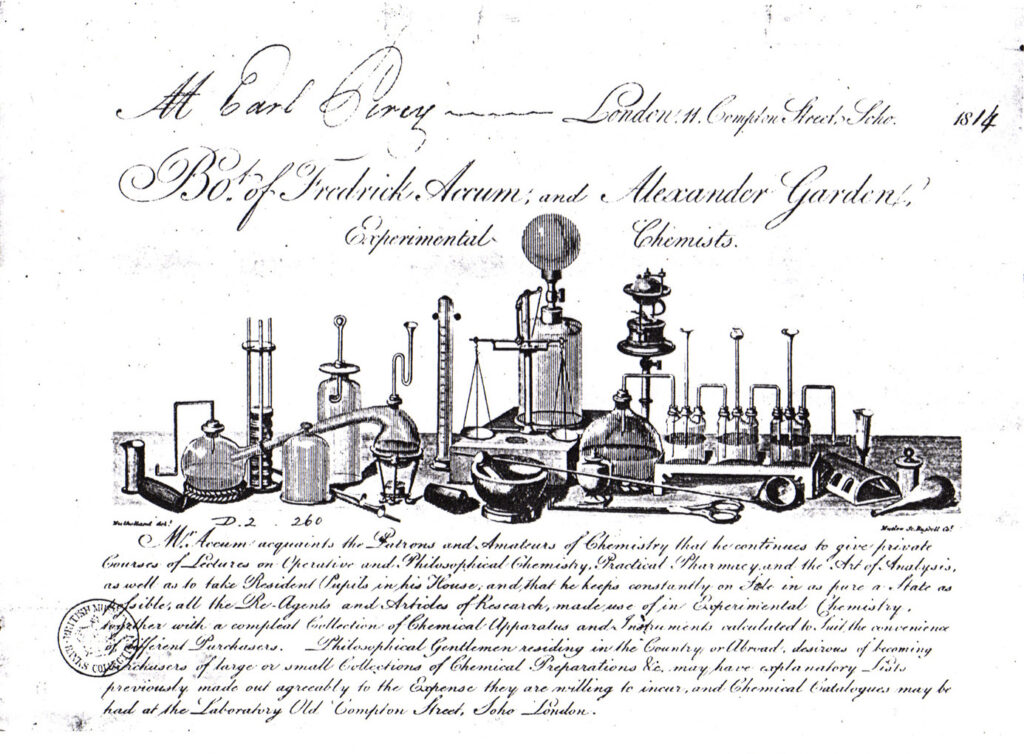 Mr Earl Percy London. 11. Compton Street, Soho. 1814
Bot. of Fredrick Accum, and Alexander Garden,
Experimental Chemists.
D.2. 260
Mr. Accum acquaints the Patrons and Amateurs of Chemistry that he continues to give private
Courses of Lectures on Operative and Philosophical Chemistry, Practical Pharmacy, and the Art of Analysis,
as well as to take Resident Pupils in his House, and that he keeps constantly on Sale in as pure a State as
possible, all the Re-Agents and Articles of Research, made use of in Experimental Chemistry,
together with a compleat Collection of Chemical Apparatus and Instruments calculated to Suit the convenience
of different Purchasers. Philosophical Gentlemen residing in the Country or Abroad, desirous of becoming
Purchasers of large or small Collections of Chemical Preparations &c. may have explanatory Lists
previously made out agreeably to the Expense they are willing to incur, and Chemical Catalogues may be
had at the Laboratory Old Compton Street, Soho London.
BRITISH
BANKS COLLECTION